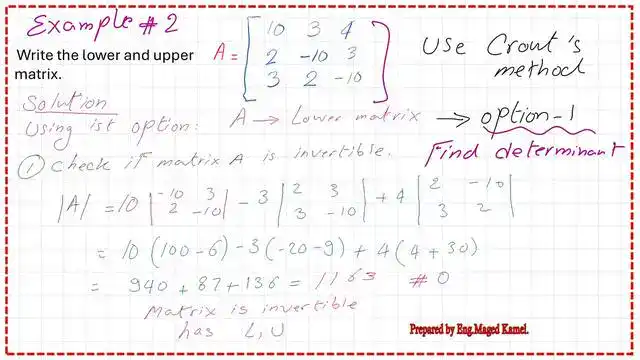 Example # 2
Write the lower and upper
matrix.
A = [ 10 3 4
2 -10 3
3 2 -10 ]
Use Crout's
method
Solution
Using 1st option: A → Lower matrix → option-1
① Check if matrix A is invertible. Find determinant
|A| = 10 | -10 3 | - 3 | 2 3 | + 4 | 2 -10 |
| 2 -10 | | 3 -10 | | 3 2 |
= 10 (100 - 6) - 3 (-20 - 9) + 4 (4 + 30)
= 940 + 87 + 136 = 1163 # 0
Matrix is invertible
has L, U
Prepared by Eng.Maged Kamel.